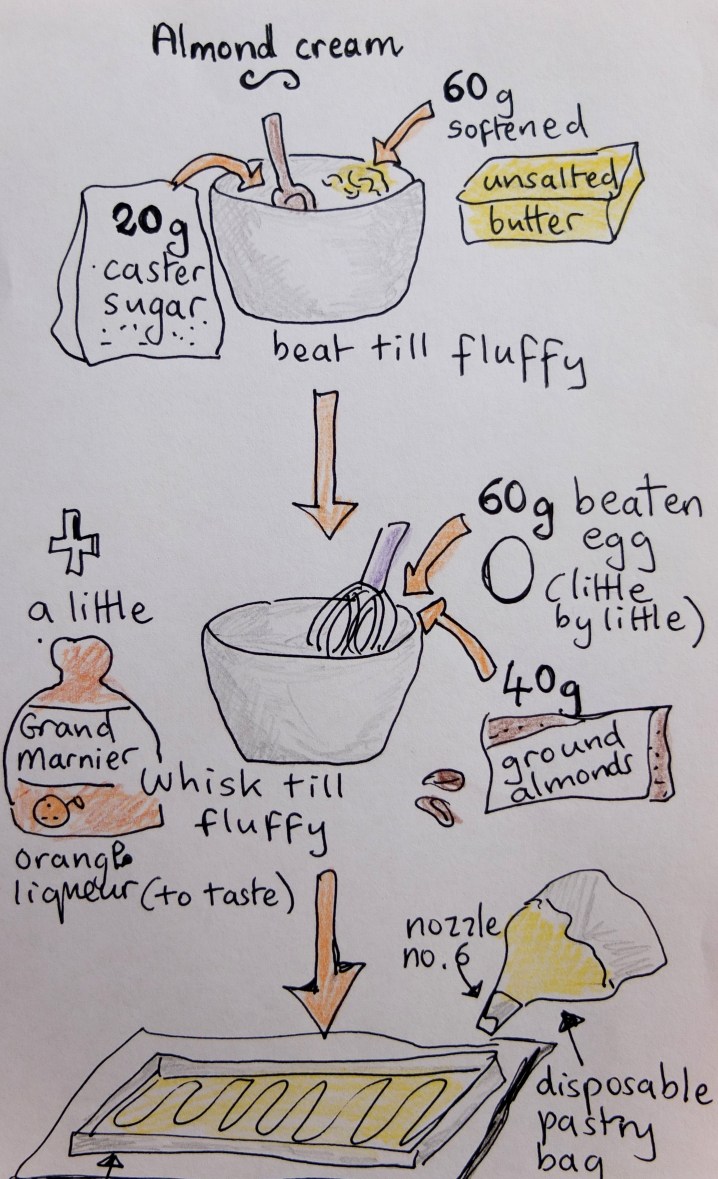 Almond cream
60g
softened
unsalted
butter
20g
caster
sugar
beat till fluffy
60g beaten
egg
(little
by little)
+
a little
Grand
Marnier
40g
ground
almonds
Whisk till
fluffy
orange
liqueur (to taste)
nozzle
no. 6
disposable
pastry
bag